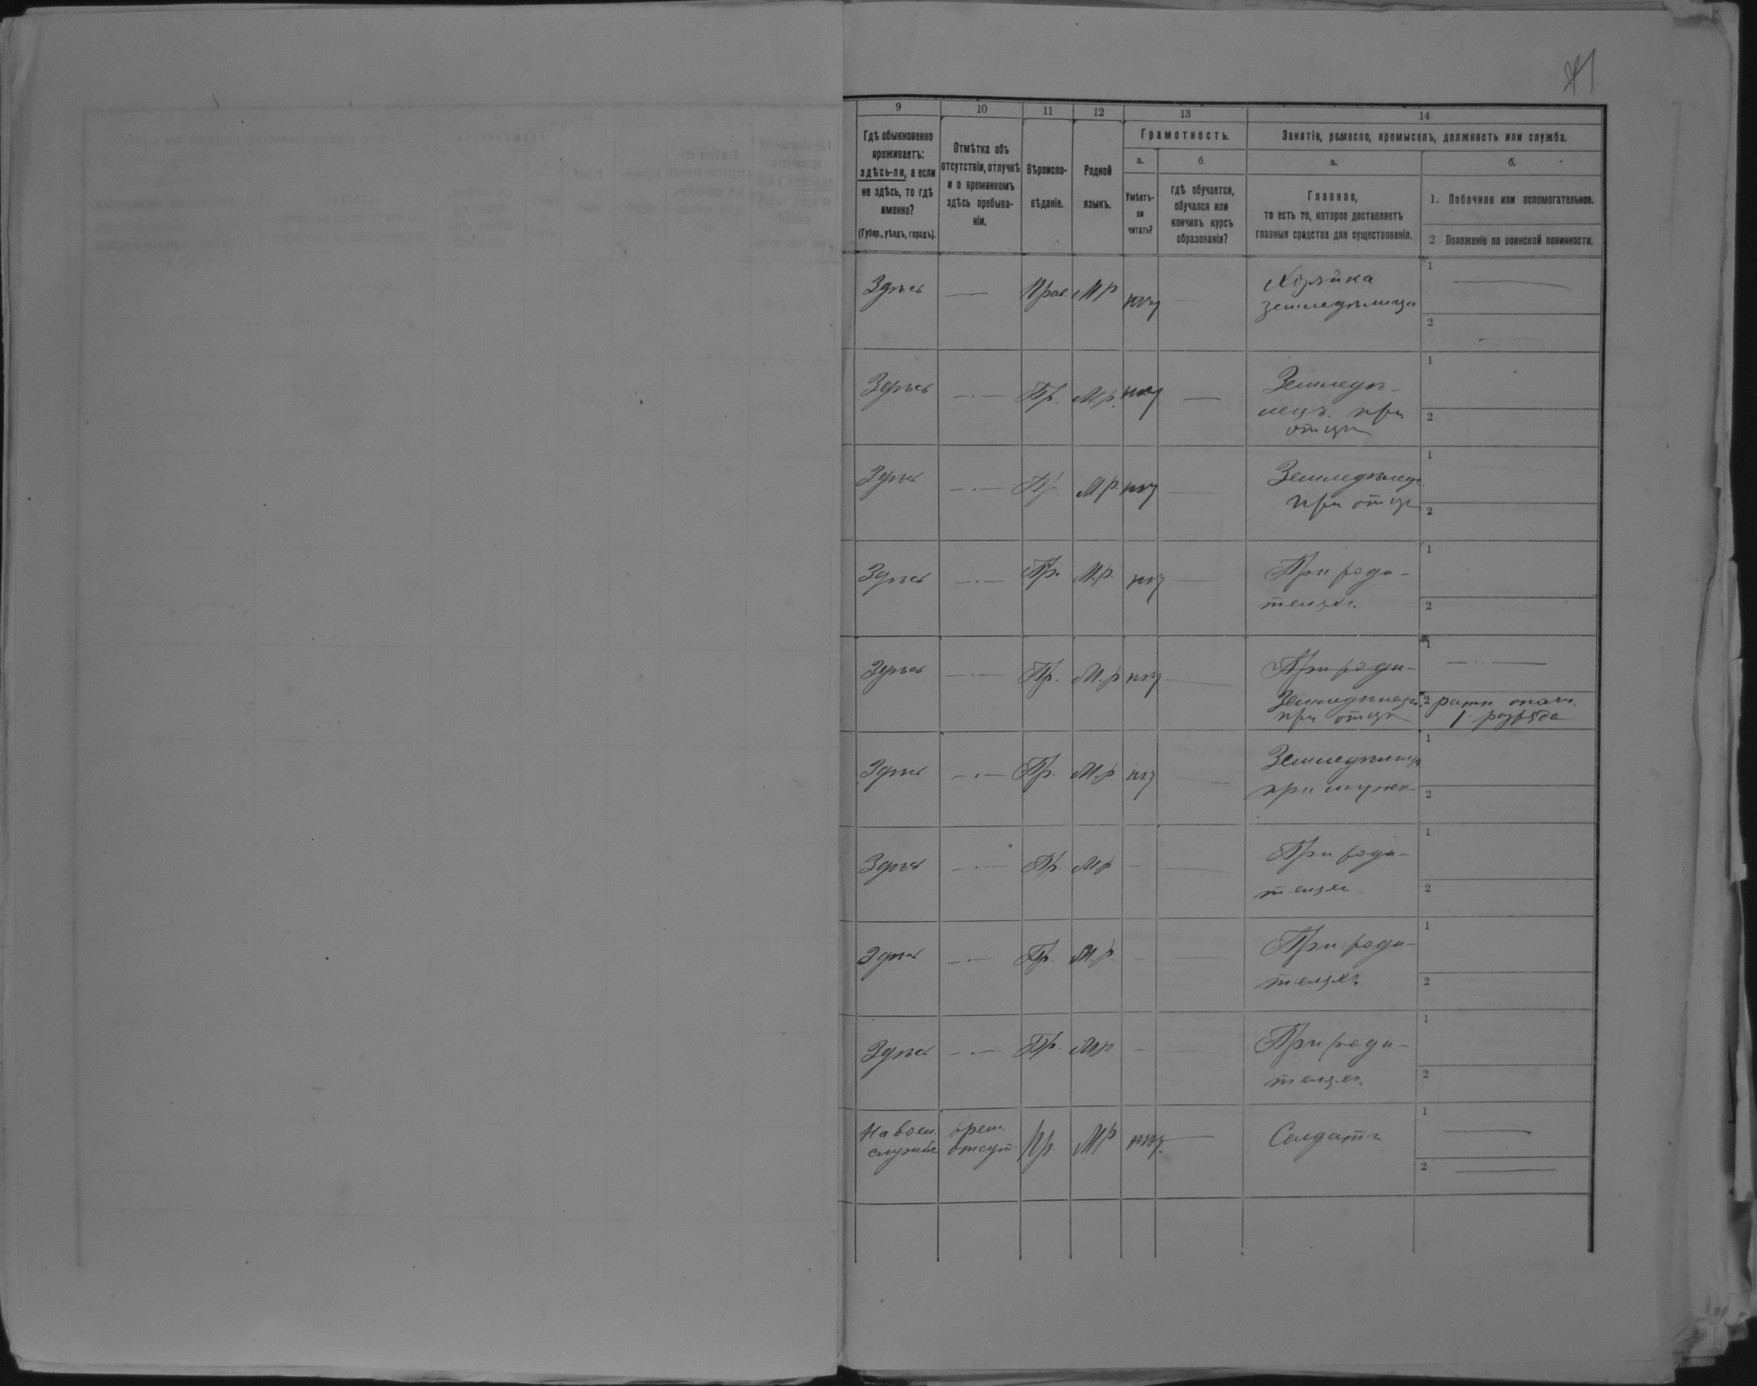 41
9 10 11 12 13 14
Гдѣ обыкновенно
проживаетъ:
здѣсь-ли, а если
не здѣсь, то гдѣ
именно?
(Губер., уѣздъ, городъ).
Отмѣтка объ
отсутствіи, отлучкѣ
и о временномъ
здѣсь пребыва-
ніи.
Вѣроиспо-
вѣданіе.
Родной
языкъ.
Грамотность.
а. б.
Умѣетъ-
ли
читать?
гдѣ обучается,
обучался или
кончилъ курсъ
образованія?
Занятія, ремесло, промыселъ, должность или служба.
а. б.
Главное,
то есть то, которое доставляетъ
главныя средства для существованія.
1. Побочное или вспомогательное.
2 Положеніе по воинской повинности.
Здѣсь — Прав. М р нѣт — Хозяйка 1 —
земледѣлица
2
Здѣсь — Пр. М.р. нѣт — Земледѣ- 1
лецъ при 2
отцѣ
Здѣсь — Пр. М.р. нѣт — Земледѣлец 1
при отцѣ 2
Здѣсь — Пр. М.р. нѣт — При роди- 1
теляхъ. 2
Здѣсь — Пр. М.р нѣт — При роди- 1 —
Земледѣлецъ 2 ратн опол.
при отцѣ 1 разряда
Здѣсь — Пр. М.р нѣт — Земледѣлица 1
при мужѣ 2
Здѣсь — Пр. М.р — — При роди- 1
теляхъ 2
Здѣсь — Пр. М.р. — — При роди- 1
теляхъ. 2
Здѣсь — Пр. М.р — — При роди- 1
теляхъ. 2
На воен. врем. Пр. МР нѣт. — Солдатъ 1 —
службѣ отсут- 2 —